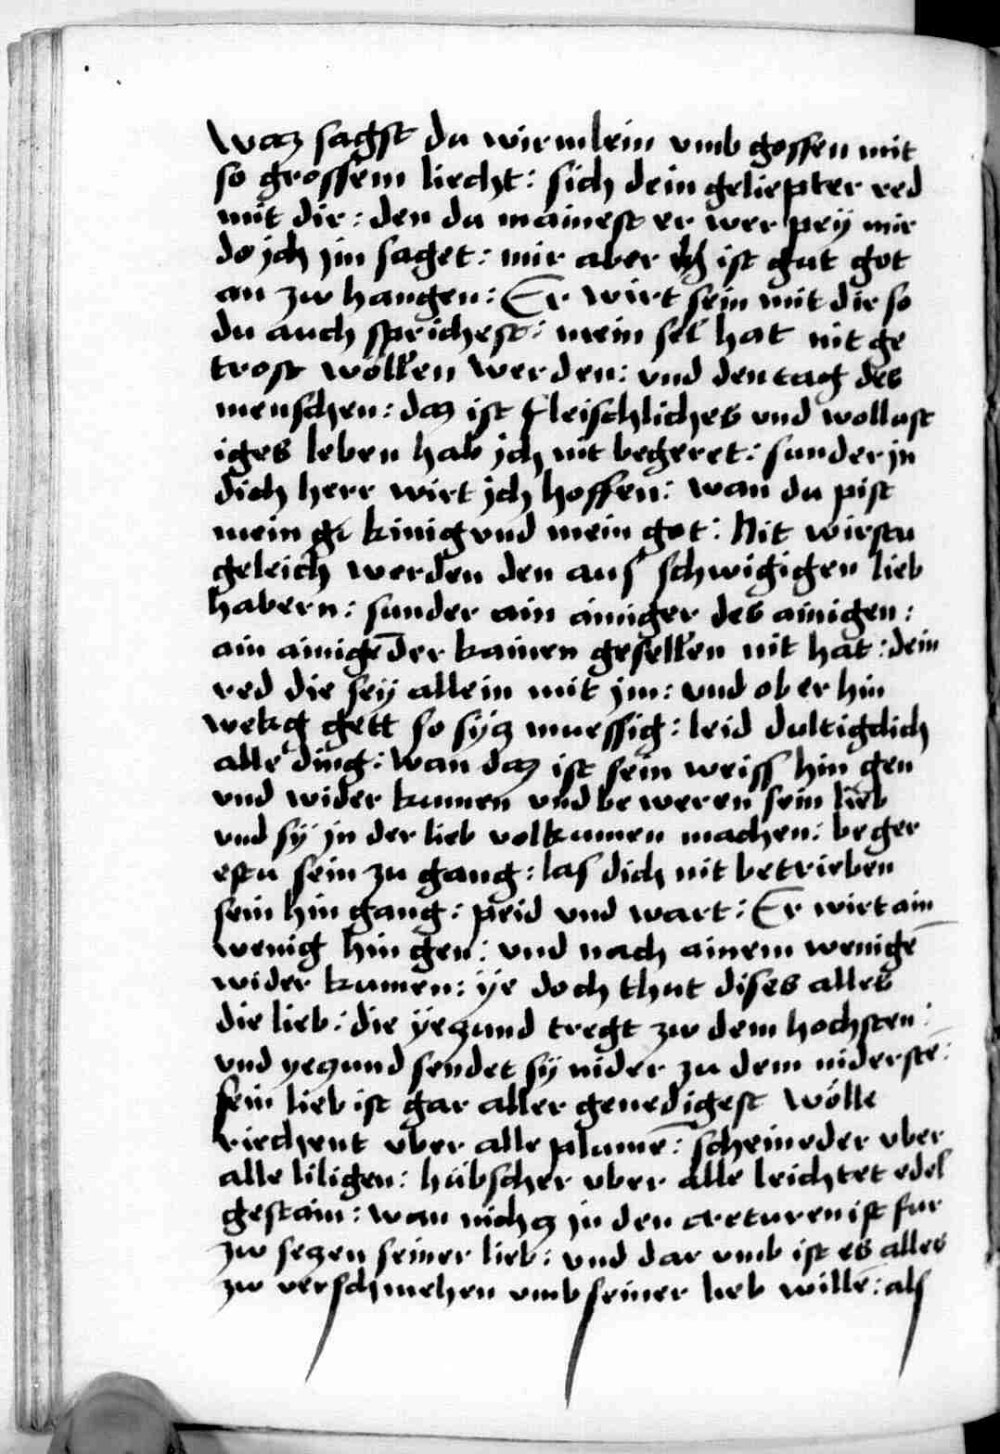 Waz sagst du wirmlein vmb gossen mit
so grossem liecht: sich dein geliepter red
mit dir: den du mainest er wer pey mir
do jch jm saget: mir aber ist gut got
an zw hangen: Er wirt sein mit dir so
du auch sprichest: mein sel hat nit ge
trost wöllen werden: vnd den tag des
menschen: daz ist fleischliches vnd wollust
iges leben hab jch nit begeret: sunder jn
dich herr wirt jch hoffen: wan du pist
mein kinig vnd mein got: Nit wirstu
geleich werden den aus schwigigen lieb
habern: sunder ain ainiger des ainigen:
ain ainigē der kainen gesellen nit hat: dein
red die sey allein mit jm: vnd ob er hin
wekg gett so syz muessig: leid dultigclich
alle ding: wan daz ist sein weiss hin gen
vnd wider kumen vnd beweren sein lieb
vnd sy jn der lieb volkumen machen: beger
estu sein zu gang: las dich nit betrieben
sein hin gang: peid vnd wart: Er wirt ain
wenig hin gen: vnd nach ainem wenigē
wider kumen: ye doch thut dises alles
die lieb: die yezund tregt zw dem hochsten:
vnd yezund sendet sy nider zu dem niderstē:
sein lieb ist gar aller genedigest wolle
riechent vber alle plumē: scheineder vber
alle liligen: hübscher vber alle leichtet edel
gestain: wan nichz jn den creturen ist fur
zw sezen seiner lieb: vnd dar vmb ist es alles
zw verschmehen vmb seiner lieb willē: als